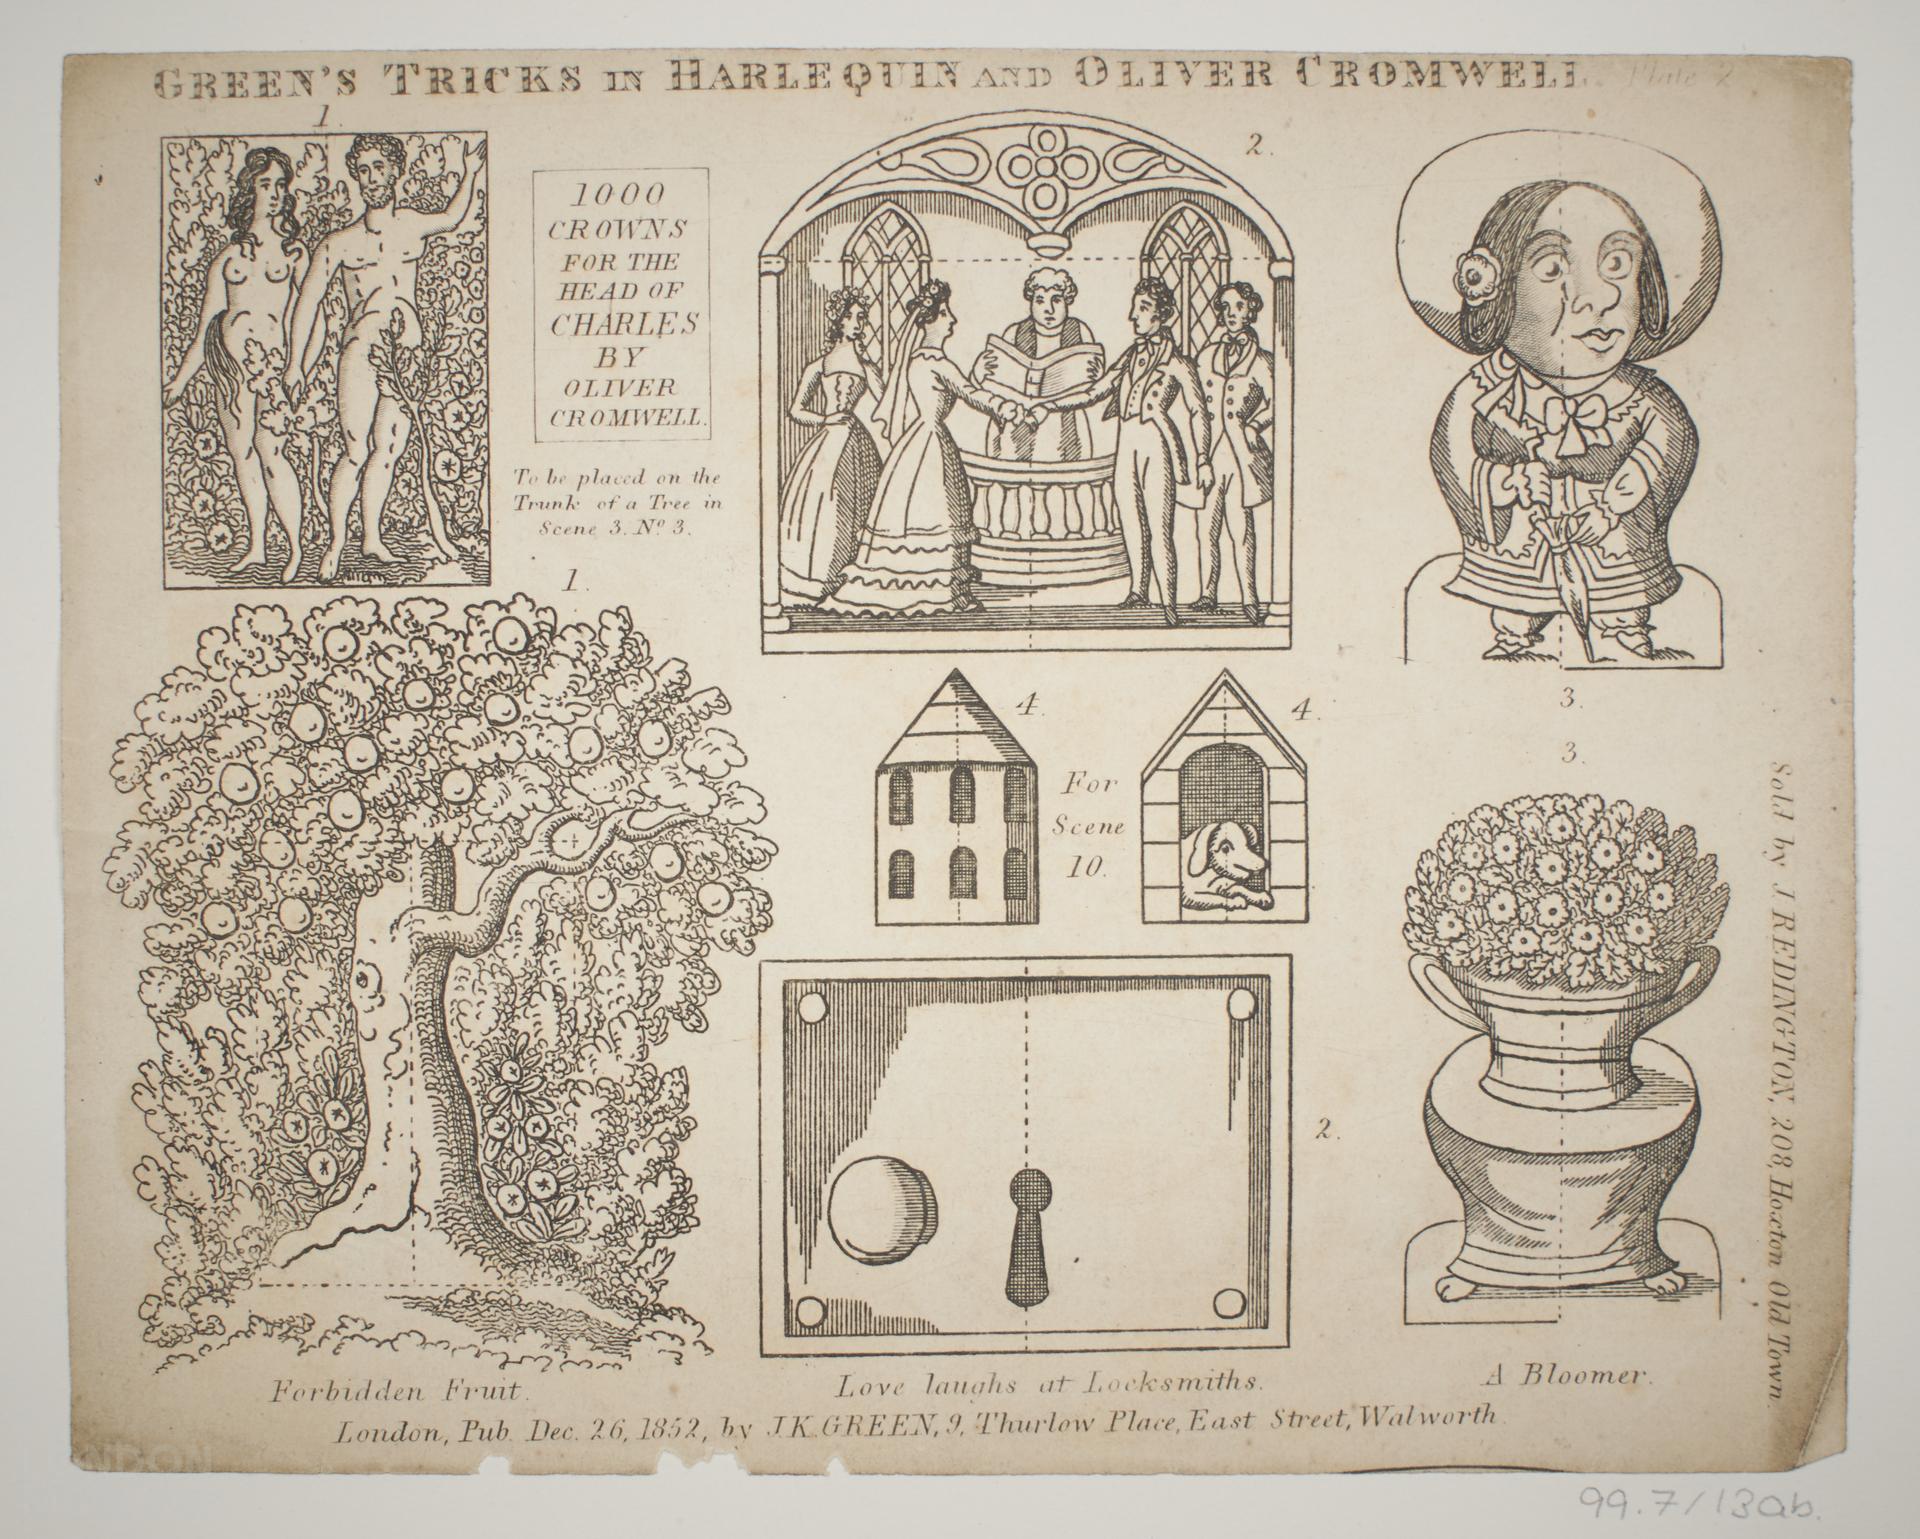 GREEN'S TRICKS IN HARLEQUIN AND OLIVER CROMWELL. Plate 2
1.
1000
CROWNS
FOR THE
HEAD OF
CHARLES
BY
OLIVER
CROMWELL.
To be placed on the
Trunk of a Tree in
Scene 3. No. 3.
2.
1.
3.
4.
4.
For
Scene
10.
3.
2.
Sold by J. REDINGTON, 208, Hoxton Old Town.
Forbidden Fruit.
Love laughs at Locksmiths.
A Bloomer.
London, Pub. Dec. 26, 1852, by J.K. GREEN, 9, Thurlow Place, East Street, Walworth.
99.7/13ab.